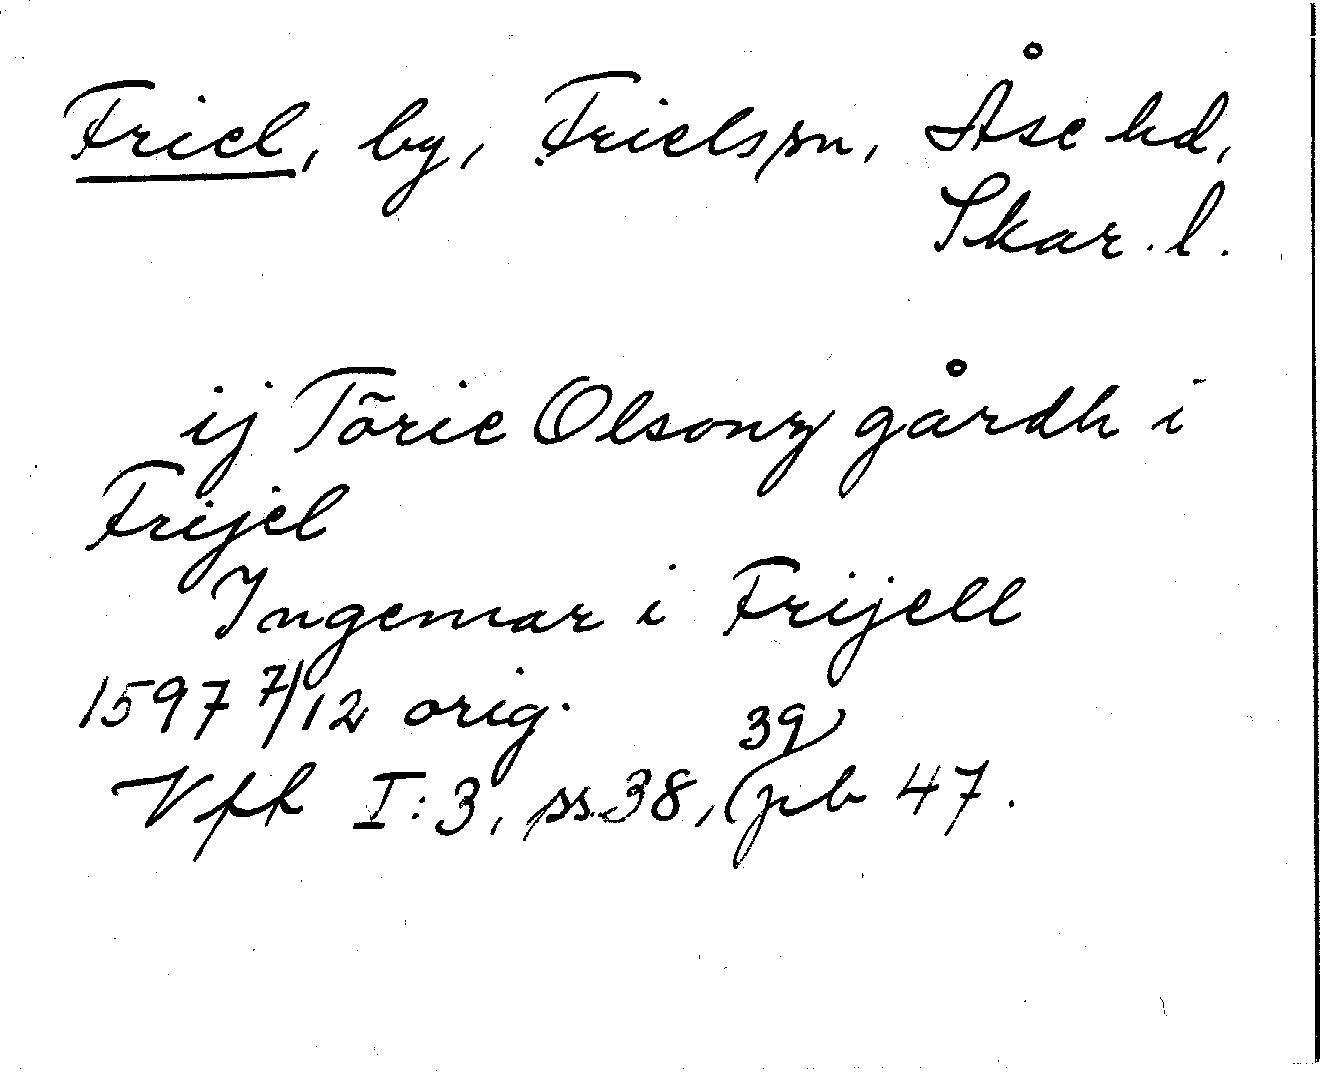 Friel, by, Friels sn, Åse hd,
Skar. l.
ij Tõrie Olsonz gårdh i
Frijel
Ingemar i Frijell
1597 7/12 orig.
Vfh I:3, ss 38, 39 (pb 47.